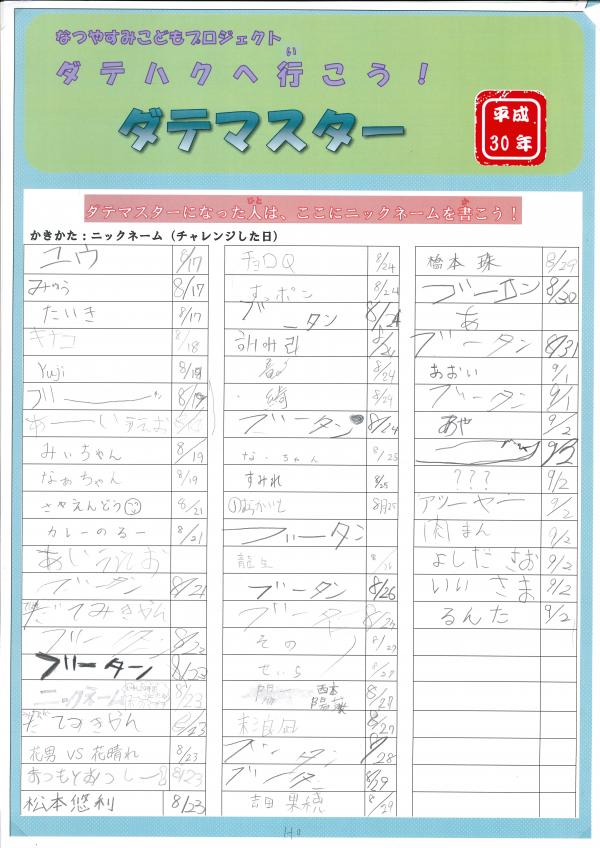 なつやすみこどもプロジェクト
ダテハクへ行こう！
い
ダテマスター
平成
30年
ダテマスターになった人は、ここにニックネームを書こう！
ひと
か
かきかた：ニックネーム（チャレンジした日）
ユウ 8/17
みゅう 8/17
たいき 8/17
キナコ 8/18
Yuji
みぃちゃん 8/19
なぉちゃん 8/19
さやえんどう 8/21
カレーのるー 8/21
あいうえお
ブータン 8/21
だてみきゃん
ブータン 8/22
ブリーターン
ニックネーム 8/23
だてみきゃん 8/23
花男 VS 花晴れ 8/23
8/23
松本悠利 8/23
チョロQ 8/24
すッポン 8/24
ブータン 8/24
8/24
綺 8/24
ブータン 8/24
なーちゃん 8/25
すみれ 8/25
8月25
ブータン
龍生
ブータン 8/26
ブータン
その 8/27
せいら 8/27
陽 西本陽葉 8/27
8/27
ブータン 8/28
ブータン 8/29
吉田 果穂 8/29
橋本 珠 8/29
8/30
あ
ブータン 8/31
あおい 9/1
ブータン 9/1
あや 9/2
9/2
？？？ 9/2
アツーヤー 9/2
肉まん 9/2
よしださお 9/2
いいさま 9/2
るんた 9/2